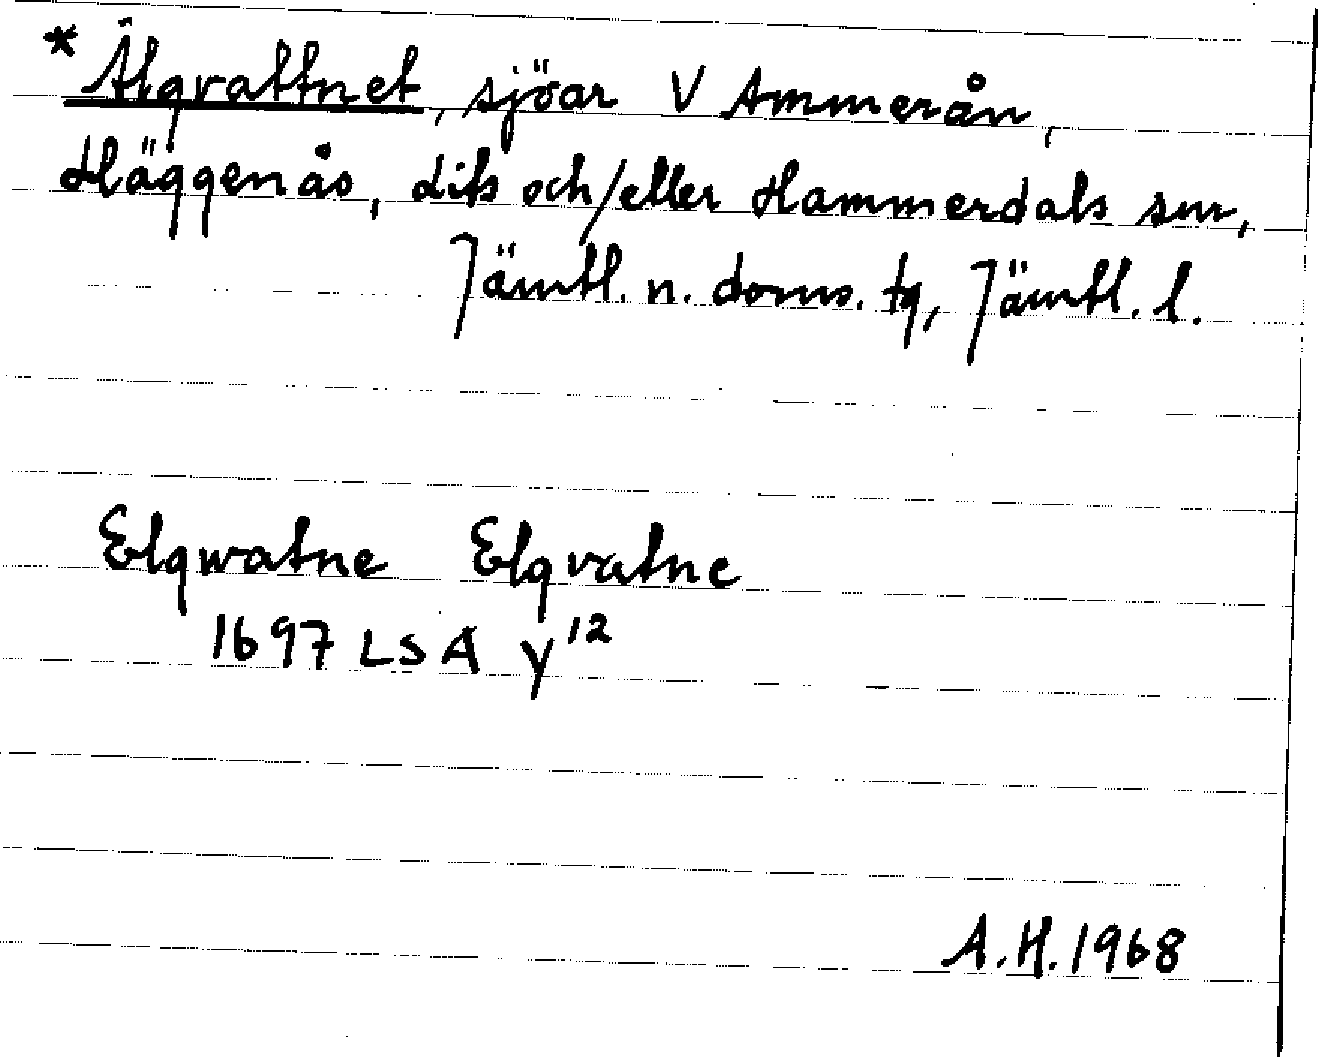 * Älgvattnet, sjöar V Ammerån,
Häggenås, Lits och/eller Hammerdals snr,
Jämtl. n. doms. tg, Jämtl. l.
Elgwatne Elgvatne
1697 LSA Y12
A.H. 1968